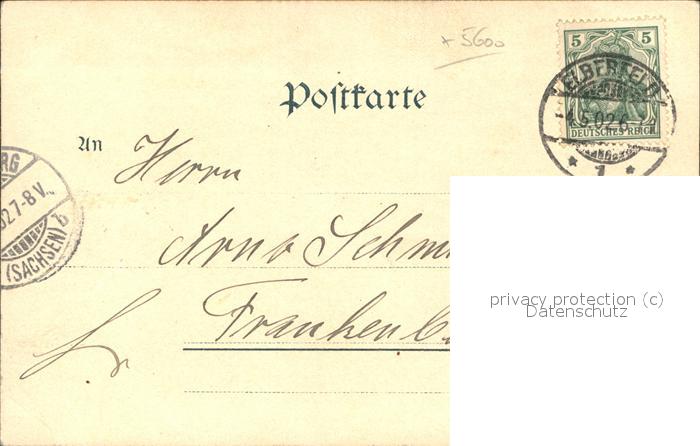 × 5600
5 5
DEUTSCHES REICH
ELBERFELD
4.5.02.6-7
* 1 *
Postkarte
An Herrn
Arno Schm
Frankenb
RG
02.7-8 V.
(SACHSEN) b
privacy protection (c)
Datenschutz